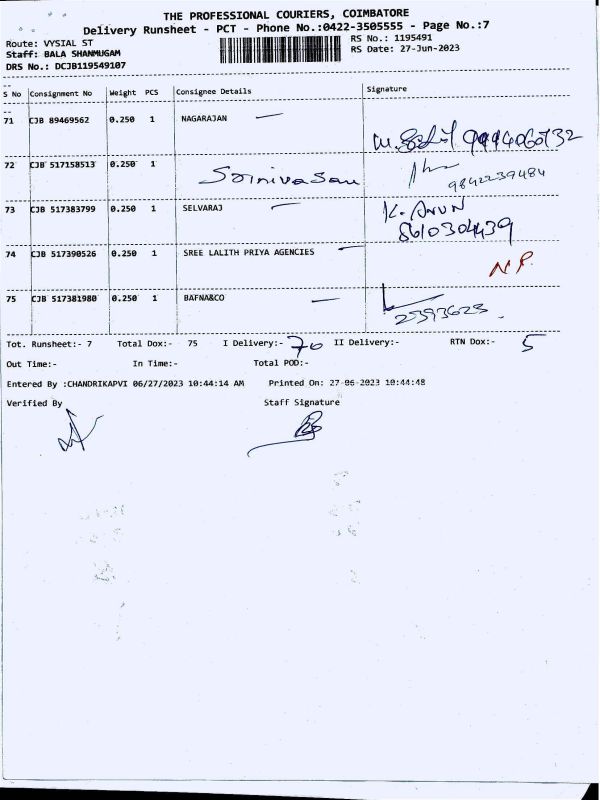 THE PROFESSIONAL COURIERS, COIMBATORE
Delivery Runsheet - PCT - Phone No.:0422-3505555 - Page No.:7
Route: VYSIAL ST
RS No.: 1195491
Staff: BALA SHANMUGAM
RS Date: 27-Jun-2023
DRS No.: DCJB119549107
S No Consignment No Weight PCS Consignee Details Signature
71 CJB 89469562 0.250 1 NAGARAJAN
72 CJB 517158513 0.250 1 Srinivasan
9842239484
73 CJB 517383799 0.250 1 SELVARAJ K. ARUN
8610304439
74 CJB 517390526 0.250 1 SREE LALITH PRIYA AGENCIES N.P.
75 CJB 517381980 0.250 1 BAFNA&CO
2393623
Tot. Runsheet:- 7 Total Dox:- 75 I Delivery:- 70 II Delivery:- RTN Dox:- 5
Out Time:- In Time:- Total POD:-
Entered By :CHANDRIKAPVI 06/27/2023 10:44:14 AM Printed On: 27-06-2023 10:44:48
Verified By Staff Signature